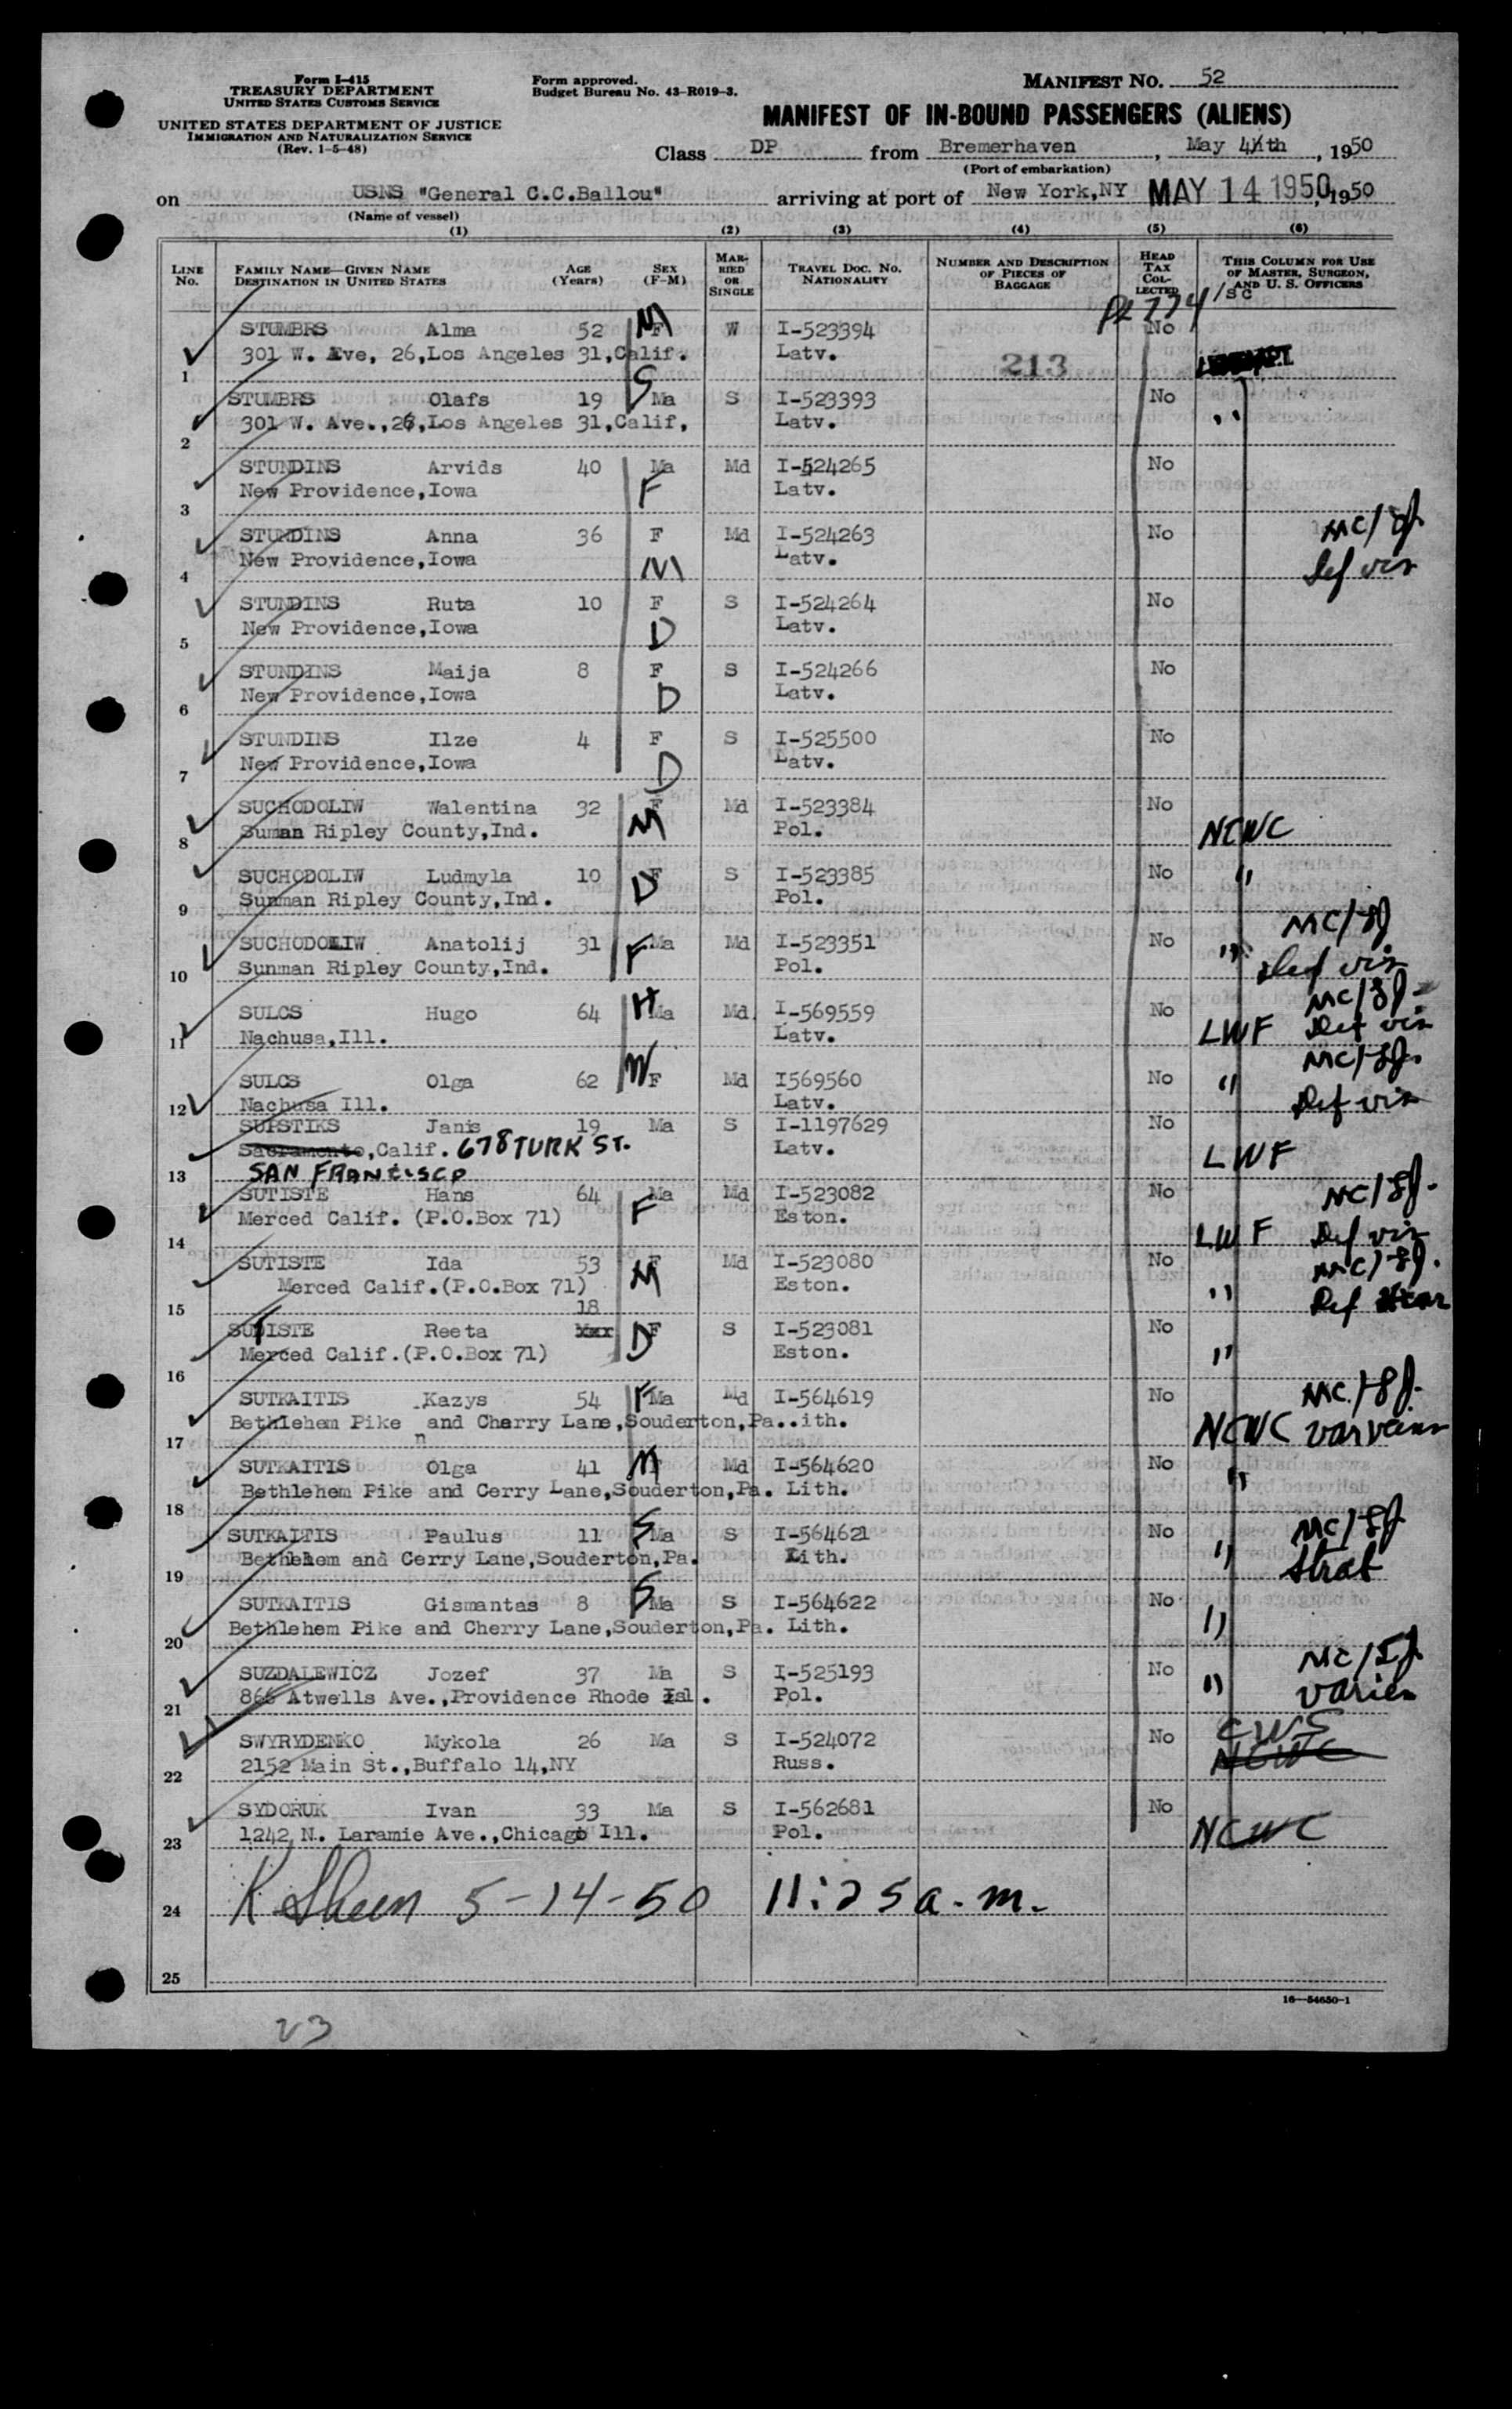 Form I-415
TREASURY DEPARTMENT
UNITED STATES CUSTOMS SERVICE
UNITED STATES DEPARTMENT OF JUSTICE
IMMIGRATION AND NATURALIZATION SERVICE
(Rev. 1-5-48)
Form approved.
Budget Bureau No. 43-R019-3.
MANIFEST NO. 52
MANIFEST OF IN-BOUND PASSENGERS (ALIENS)
Class DP from Bremerhaven, May 4th, 1950
(Port of embarkation)
on USNS "General C.C.Ballou" arriving at port of New York,NY MAY 14 1950, 1950
(Name of vessel)
(1) (2) (3) (4) (5) (6)
LINE NO. FAMILY NAME—GIVEN NAME DESTINATION IN UNITED STATES AGE (Years) SEX (F-M) MARRIED OR SINGLE TRAVEL DOC. NO. NATIONALITY NUMBER AND DESCRIPTION OF PIECES OF BAGGAGE HEAD TAX COLLECTED THIS COLUMN FOR USE OF MASTER, SURGEON, AND U. S. OFFICERS
/sc
STUMBRS Alma 52 F M W I-523394 No
1 301 W. Ave, 26,Los Angeles 31,Calif. Latv. 213
STUMBRS Olafs 19 S Ma S I-523393 No
2 301 W. Ave.,26,Los Angeles 31,Calif, Latv. "
STUNDINS Arvids 40 Ma Md I-524265 No
3 New Providence,Iowa F Latv.
STUNDINS Anna 36 F Md I-524263 No MC/
4 New Providence,Iowa M Latv. Def vis
STUNDINS Ruta 10 F S I-524264 No
5 New Providence,Iowa D Latv.
STUNDINS Maija 8 F S I-524266 No
6 New Providence,Iowa D Latv.
STUNDINS Ilze 4 F S I-525500 No
7 New Providence,Iowa D Latv.
SUCHODOLIW Walentina 32 F Md I-523384 No
8 Suman Ripley County,Ind. M Pol. NCWC
SUCHODOLIW Ludmyla 10 F D S I-523385 No "
9 Sunman Ripley County,Ind. Pol.
SUCHODOLIW Anatolij 31 F Ma Md I-523351 No " MC/
10 Sunman Ripley County,Ind. Pol. Def vis
SULCS Hugo 64 H Ma Md I-569559 No MC/
11 Nachusa,Ill. Latv. LWF Def vis
SULCS Olga 62 W F Md I569560 No " MC/
12 Nachusa Ill. Latv. Def vis
SUPSTIKS Janis 19 Ma S I-1197629 No
Sacramento,Calif. 678 TURK ST. Latv. LWF
13 SAN FRANCISCO
SUTISTE Hans 64 Ma Md I-523082 No MC/
14 Merced Calif. (P.O.Box 71) F Eston. LWF Def vis
SUTISTE Ida 53 F Md I-523080 No MC/
15 Merced Calif.(P.O.Box 71) M Eston. " Def
18
SUTISTE Reeta xxx D F S I-523081 No
16 Merced Calif.(P.O.Box 71) Eston. "
SUTKAITIS Kazys 54 F Ma Md I-564619 No MC/
17 Bethlehem Pike and Cherry Lane,Souderton,Pa..ith. NCWC var veins
n
SUTKAITIS Olga 41 M Md I-564620 No "
18 Bethlehem Pike and Cerry Lane,Souderton,Pa. Lith.
SUTKAITIS Paulus 11 S Ma S I-564621 No MC/
19 Bethlehem and Cerry Lane,Souderton,Pa. Lith. " Strab
SUTKAITIS Gismantas 8 S Ma S I-564622 No
20 Bethlehem Pike and Cherry Lane,Souderton,Pa. Lith. "
SUZDALEWICZ Jozef 37 Ma S I-525193 No MC/
21 866 Atwells Ave.,Providence Rhode Isl. Pol. "
SWYRYDENKO Mykola 26 Ma S I-524072 No CWS
22 2152 Main St.,Buffalo 14,NY Russ. NCWC
SYDORUK Ivan 33 Ma S I-562681 No
23 1242 N. Laramie Ave.,Chicago Ill. Pol. NCWC
24 K Sheen 5-14-50 11:25 a.m.
25
16—54650-1
23